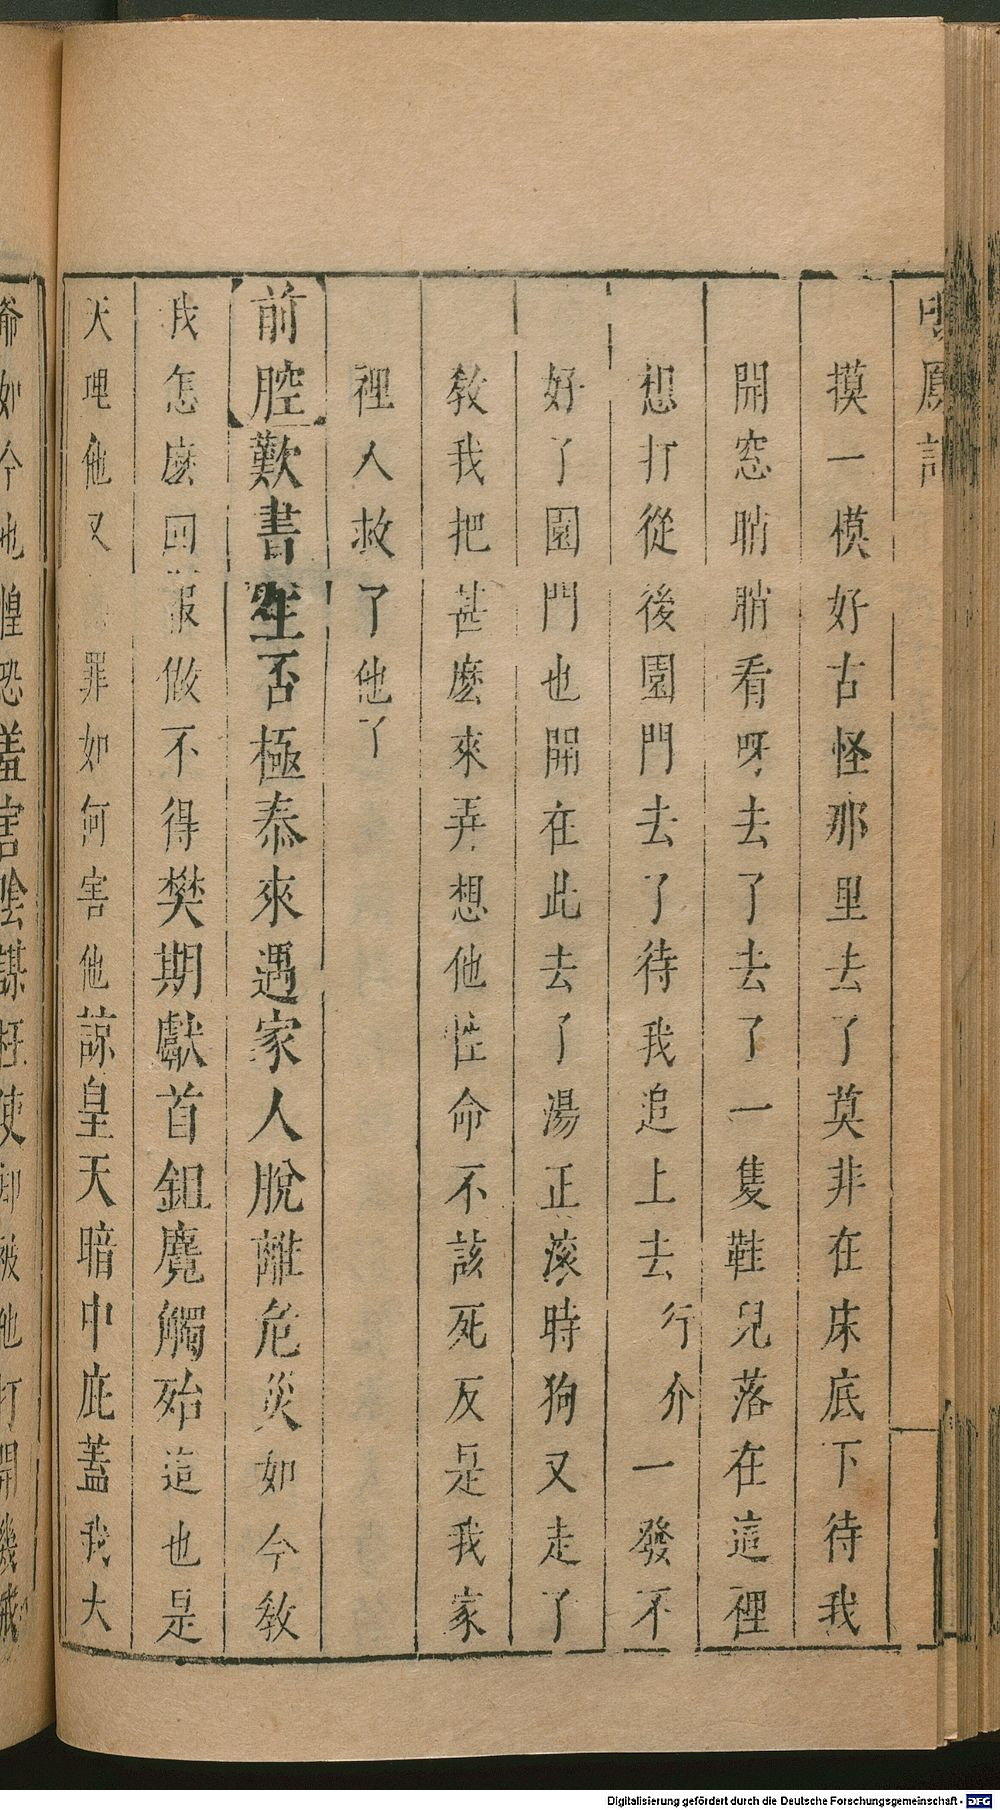 鳳
摸一模好古怪那里去了莫非在床底下待我
開窓睄睄看呀去了去了一隻鞋兒落在這裡
想打從後園門去了待我追上去行介一發不
好了園門也開在此去了湯正滚時狗又走了
教我把甚麽來弄想他性命不該死反是我家
裡人救了他了
前腔歎書生否極泰來遇家人脫離危災如今教
我怎麽回報做不得樊期獻首鉏麑觸殆這也是
天理他又罪如何害他諒皇天暗中庇蓋我大
爺如今也惶恐羞害陰謀枉使却被他打開幾
Digitalisierung gefördert durch die Deutsche Forschungsgemeinschaft - DFG